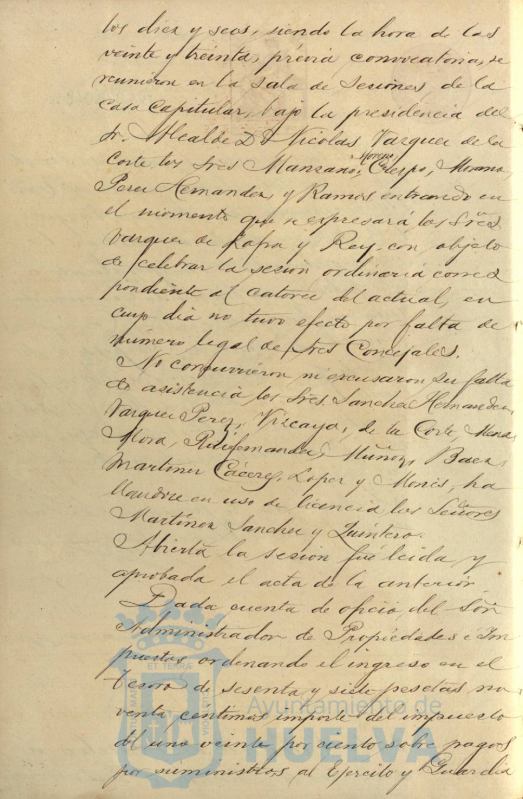 los diez y seis, siendo la hora de las
veinte y treinta, prévia convocatoria, se
reunieron en la sala de sesiones de la
Casa Capitular, bajo la presidencia del
Sr. Alcalde D. Nicolas Vazquez de la
Corte los Sres Manzano, Moreno Crespo, Moreno,
Perez Hernandez, y Ramos entrando en
el momento que se expresará los Sres.
Vazquez de Zafra y Rey, con objeto
de celebrar la sesion ordinaria corres
pondiente al catorce del actual, en
cuyo dia no tuvo efecto por falta de
número legal de Sres Concejales.
No concurrieron ni escusaron su falta
de asistencia los Sres. Sanchez Hernandez,
Vazquez Perez, Vizcaya, de la Corte,
Mora, Muñoz, Baez,
Martinez Cáceres, Lopez y Monis, ha
llandose en uso de licencia los Señores
Martinez Sanchez y Quintero.
Abierta la sesion fué leida y
aprobada el acta de la anterior
Dada cuenta de oficio del Sor
Administrador de Propiedades e Im
puestos ordenando el ingreso en el
Tesoro de sesenta y siete pesetas no
venta centimos importe del impuesto
del uno veinte por ciento sobre pagos
por suministros al Ejercito y Guardia
ET TERRÆ
Ayuntamiento de
HUELVA